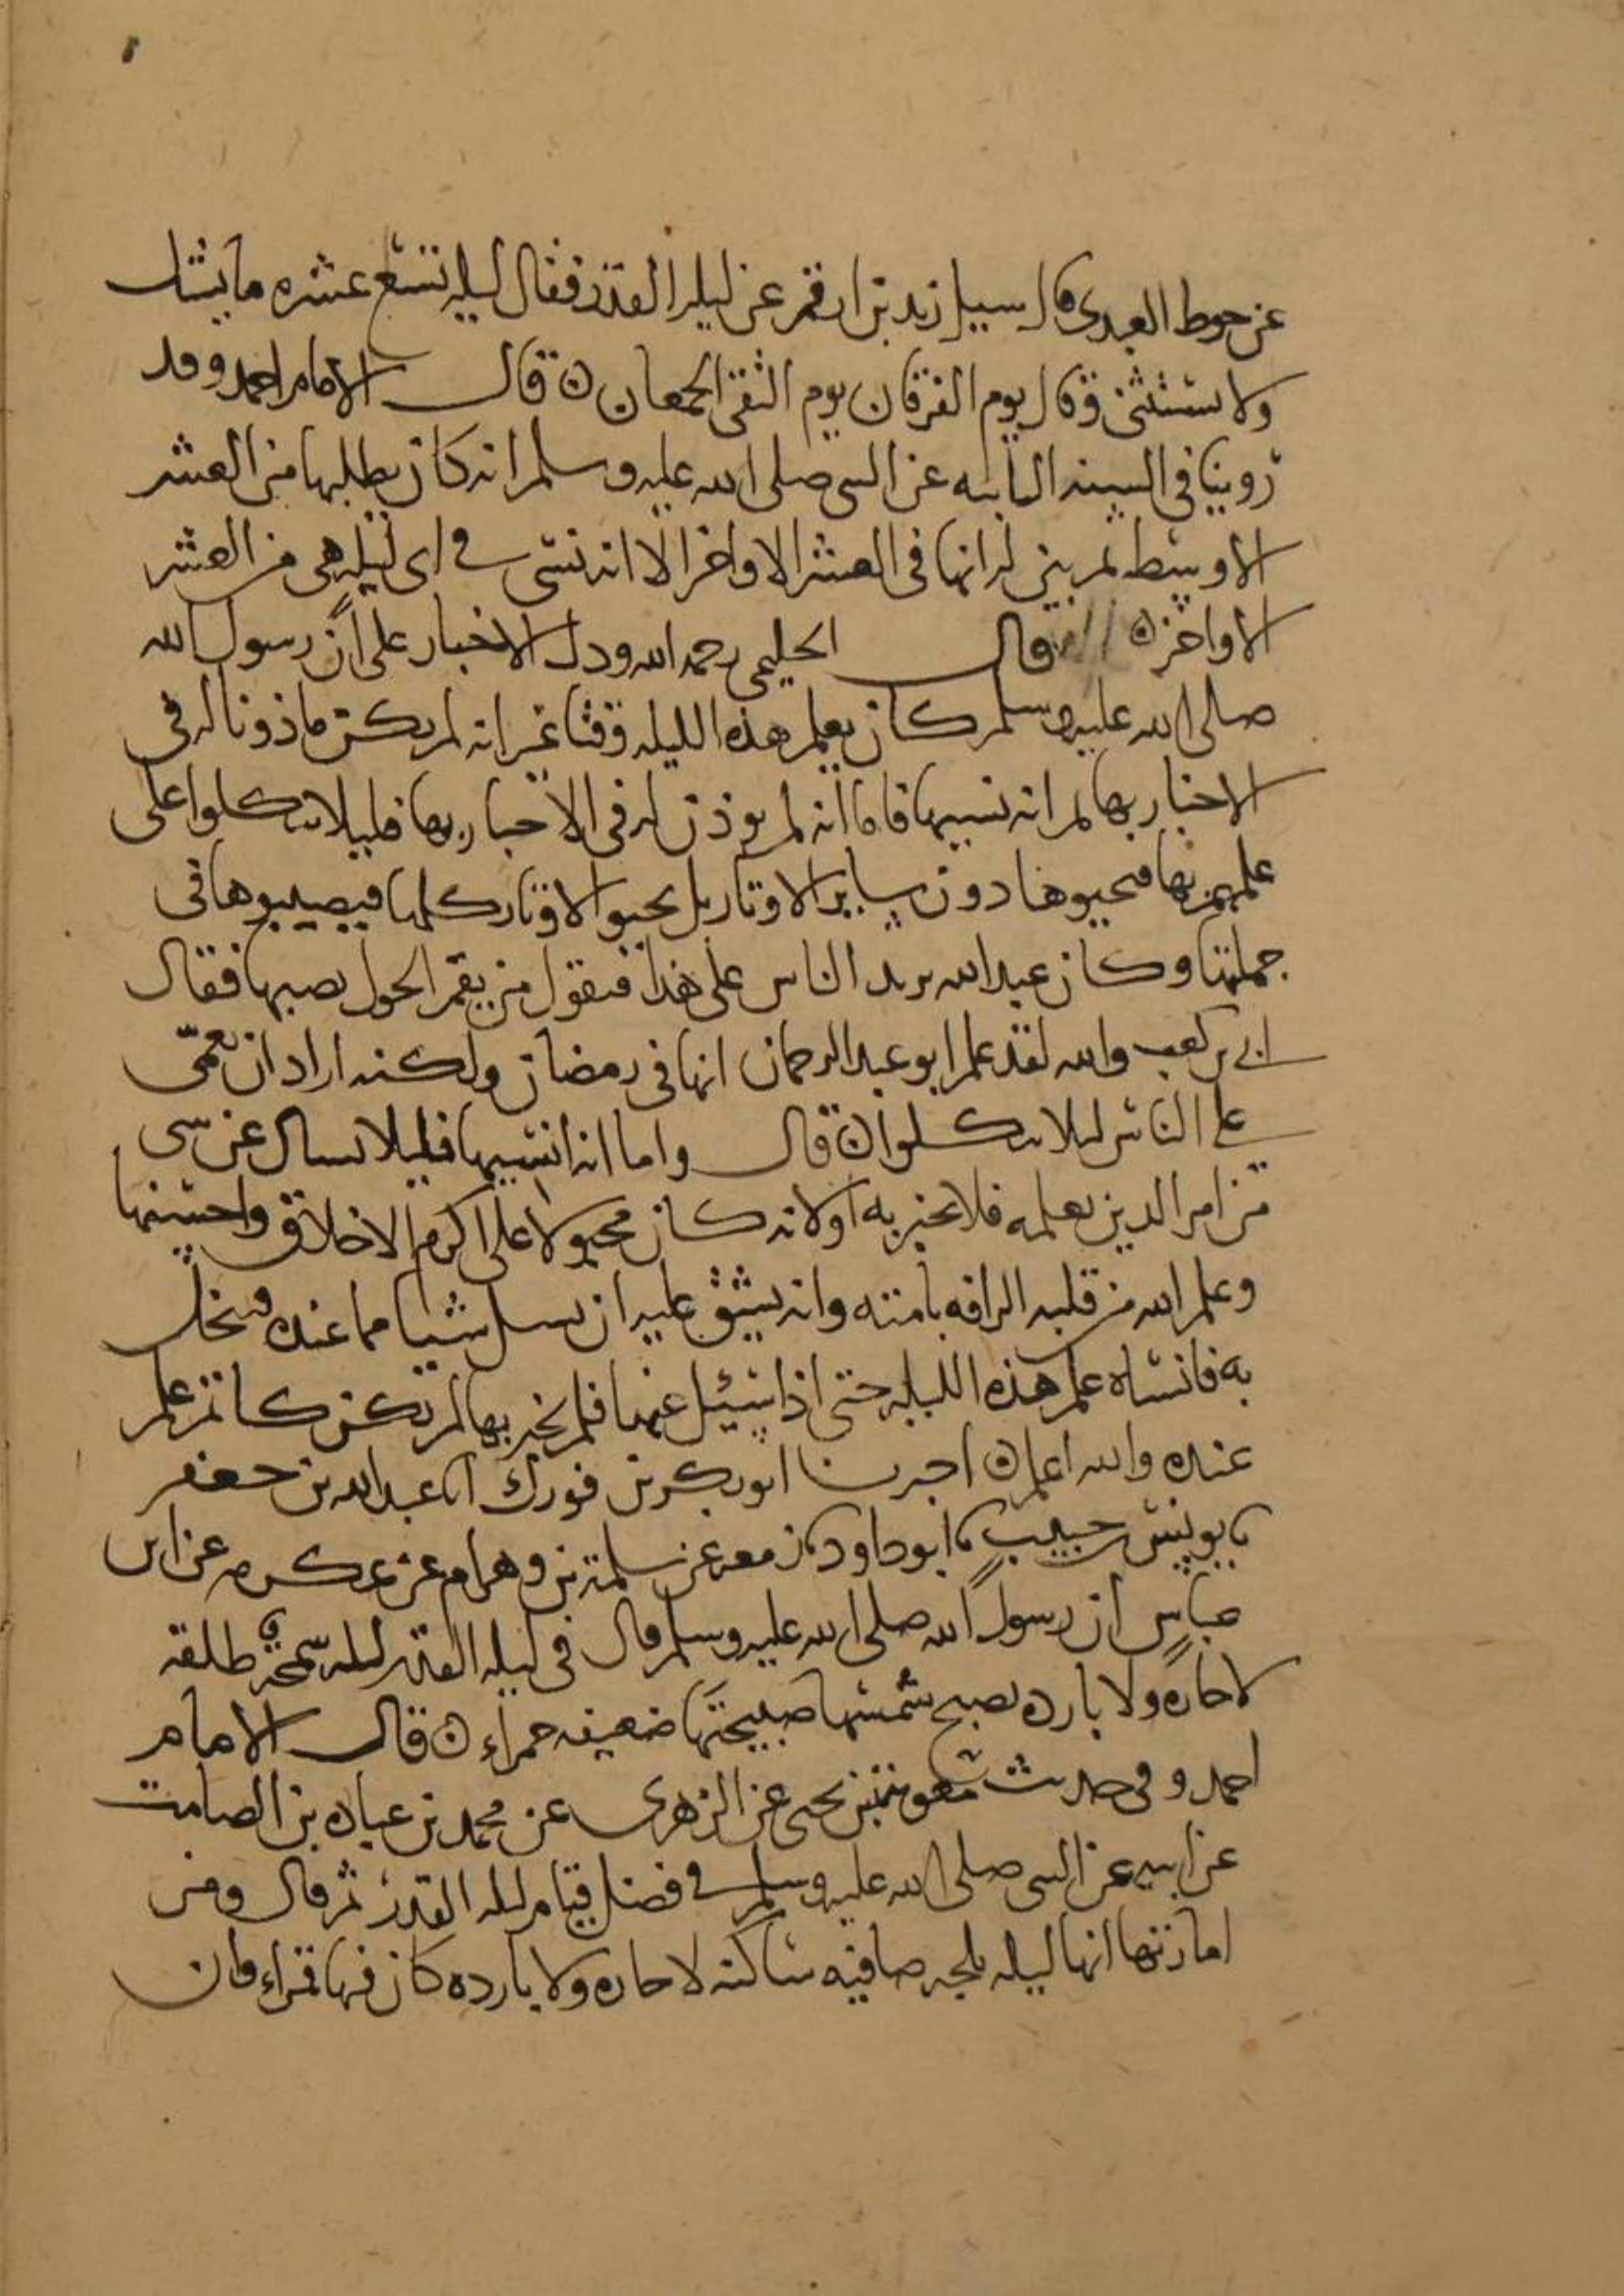 عن حوط العبدي قال سيل زيد بن ارقم عن ليله القدر فقال ليله تسع عشره ما يشك
ولا يستثني وقال يوم الفرقان يوم التقى الجمعان ه قال الامام احمد وقد
روينا في السنه الثابته عن النبي صلى الله عليه وسلم انه كان يطلبها من العشر
الاوسط ثم بين له انها في العشر الاواخر الا انه نسي في اي ليله هي من العشر
الاواخر ه قال الحليمي رحمه الله ودل الاخبار على أن رسول الله
صلى الله عليه وسلم كان يعلم هذه الليله وقتا غير انه لم يكن ماذونا له في
الاخبار بها ثم انه نسيها فاما انه لم يوذن له في الاخبار بها فليلا يتكلوا على
علمهم بها فيحيوها دون ساير الاوتار بل يحيوا الاوتار كلها فيصيبوها في
جملتها وكان عبد الله يريد الناس على هذا فيقول من يقم الحول يصبها فقال
ابي بن كعب والله لقد علم ابو عبد الرحمان انها في رمضان ولكنه اراد ان يعمّي
على الناس ليلا يتكلوا ه قال واما انه انسيها فليلا يسال عن شي
من امر الدين يعلمه فلا يخبر به اولانه كان مجبولا على اكرم الاخلاق واحسنها
وعلم الله من قلبه الرافه بامته وانه يشق عليه ان يسل شيا مما عنده فيبخل
به فانساه علم هذه الليله حتى اذا سيئل عنها فلم يخبر بها لم يكن كاتم علم
عنده والله اعلم ه اخبرنا ابو بكر بن فورك انا عبد الله بن جعفر
نا يونس حبيب نا ابو داود نا زمعه عن سلمة بن وهرام عن عكرمه عن ابن
عباس ان رسول الله صلى الله عليه وسلم قال في ليله القدر ليله سمحة طلقه
لا حاره ولا بارده تصبح شمسها صبيحتها ضعيفه حمراء ه قال الامام
احمد وفي حديث معويه بن يحيى عن الزهري عن محمد بن عباده بن الصامت
عن ابيه عن النبي صلى الله عليه وسلم في فضل قيام ليله القدر ثم قال ومن
امارتها انها ليله بلجه صافيه ساكنه لا حاره ولا بارده كان فيها قمراء وان